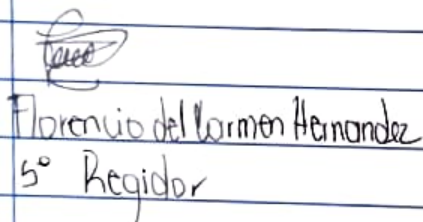 Florencio del Carmen Hernandez
5° Regidor